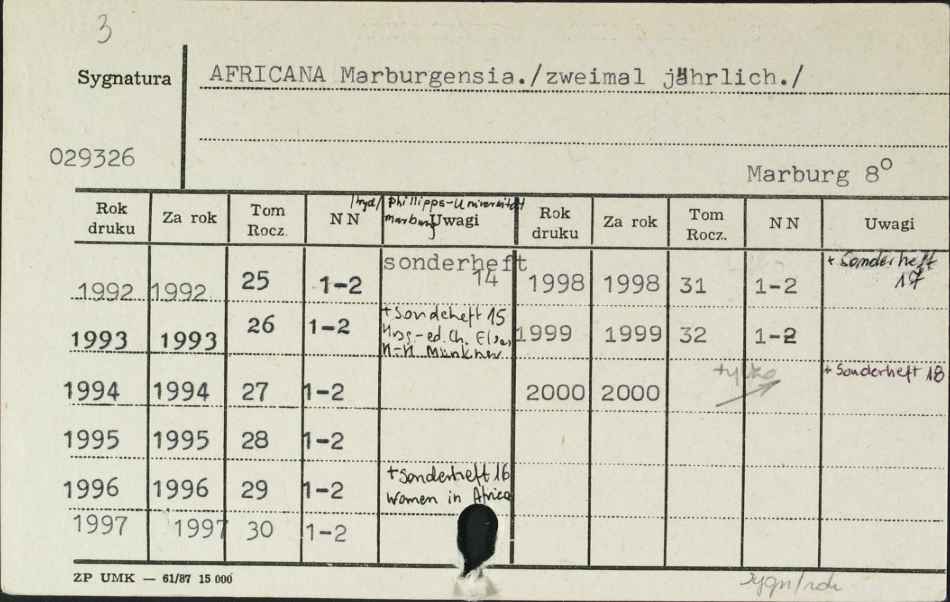 3
Sygnatura AFRICANA Marburgensia./zweimal jährlich./
029326
Marburg 8°
Phillipps-Universität
Marburg
Rok druku Za rok Tom Rocz. NN Uwagi Rok druku Za rok Tom Rocz. NN Uwagi
1992 1992 25 1-2 sonderheft 14 1998 1998 31 1-2 + Sonderheft 17
1993 1993 26 1-2 + Sondeheft 15 1999 1999 32 1-2
1994 1994 27 1-2 2000 2000 tylko + Sonderheft 18
1995 1995 28 1-2
1996 1996 29 1-2 + Sonderheft 16 Women in Africa
1997 1997 30 1-2
ZP UMK — 61/87 15 000